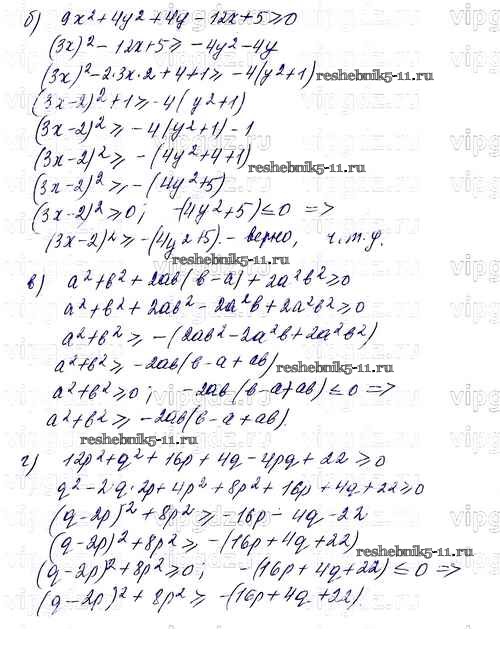 б) 9x²+4y²+4y-12x+5≥0
(3x)²-12x+5≥-4y²-4y
(3x)²-2·3x·2+4+1≥-4(y²+1)
reshebnik5-11.ru
(3x-2)²+1≥-4(y²+1)
(3x-2)²≥-4(y²+1)-1
(3x-2)²≥-(4y²+4+1)
reshebnik5-11.ru
(3x-2)²≥-(4y²+5)
(3x-2)²≥0; -(4y²+5)≤0 =>
(3x-2)²≥-(4y²+5).- верно, ч.т.д.
reshebnik5-11.ru
в) a²+b²+2ab(b-a)+2a²b²≥0
a²+b²+2ab²-2a²b+2a²b²≥0
a²+b²≥-(2ab²-2a²b+2a²b²)
a²+b²≥-2ab(b-a+ab)
reshebnik5-11.ru
a²+b²≥0; -2ab(b-a+ab)≤0 =>
a²+b²≥-2ab(b-a+ab).
reshebnik5-11.ru
г) 12p²+q²+16p+4q-4pq+22≥0
q²-2·q·2p+4p²+8p²+16p+4q+22≥0
(q-2p)²+8p²≥-16p-4q-22
(q-2p)²+8p²≥-(16p+4q+22)
reshebnik5-11.ru
(q-2p)²+8p²≥0; -(16p+4q+22)≤0 =>
(q-2p)²+8p²≥-(16p+4q+22).